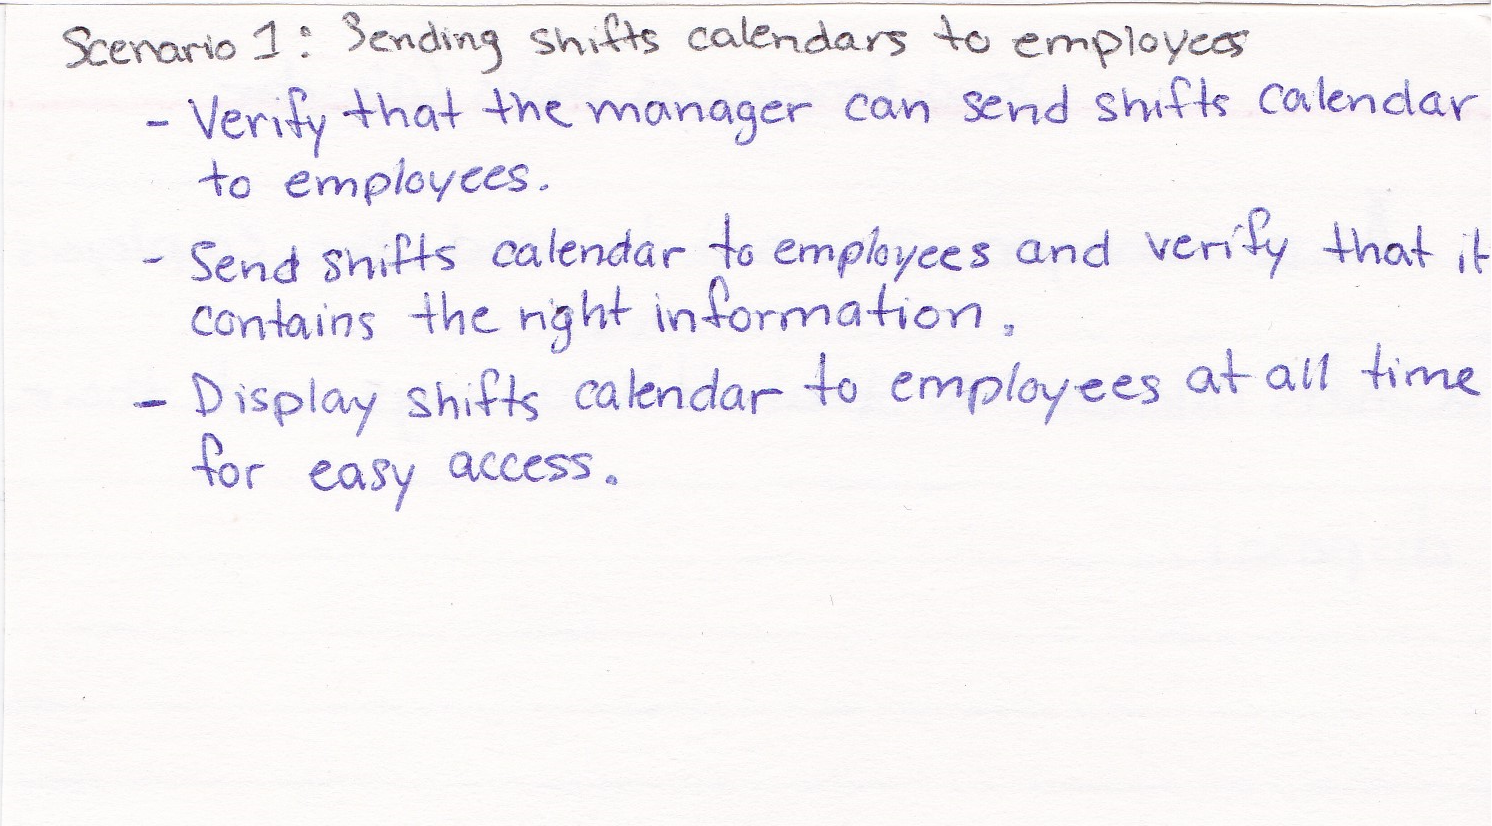 Scenario 1: Sending shifts calendars to employees
- Verify that the manager can send shifts calendar
to employees.
- Send shifts calendar to employees and verify that it
contains the right information.
- Display shifts calendar to employees at all time
for easy access.